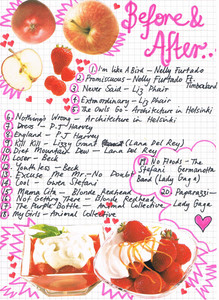 Before &
After..
1) I'm Like A Bird - Nelly Furtado
2) Promiscuous - Nelly Furtado Ft. Timberland
3) Never Said - Liz Phair
4) Extraordinary - Liz Phair
5) The Owls Go - Architecture in Helsinki
6) Nothing's Wrong - Architecture in Helsinki
7) Dress - PJ Harvey
8) England - PJ Harvey
9) Kill Kill - Lizzy Grant (Lana Del Rey)
10) Diet Mountain Dew - Lana Del Rey
11) Loser - Beck
12) Youthless - Beck
13) Excuse Me Mr - No Doubt
14) Cool - Gwen Stefani
15) Melody Cita - Blonde Redhead
16) Not Getting There - Blonde Redhead
17) The Purple Bottle - Animal Collective
18) My Girls - Animal Collective
19) No Floods - The
Stefani Germanotta
Band (Lady Gaga)
20) Paparazzi -
Lady Gaga.